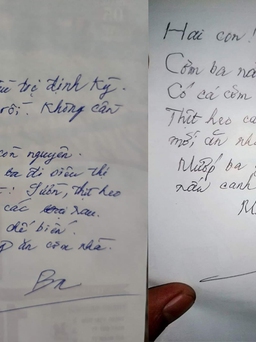 trị định kỳ.
rồi. Không cần
còn nguyên.
Ba đi siêu thị
thịt heo
các rau.
chế biến.
ăn cơm nhà.
Ba
Hai con!
Cơm ba nấ
Có cá cơm
Thịt heo
mới, ăn nh
Mướp ba
nấu canh
M